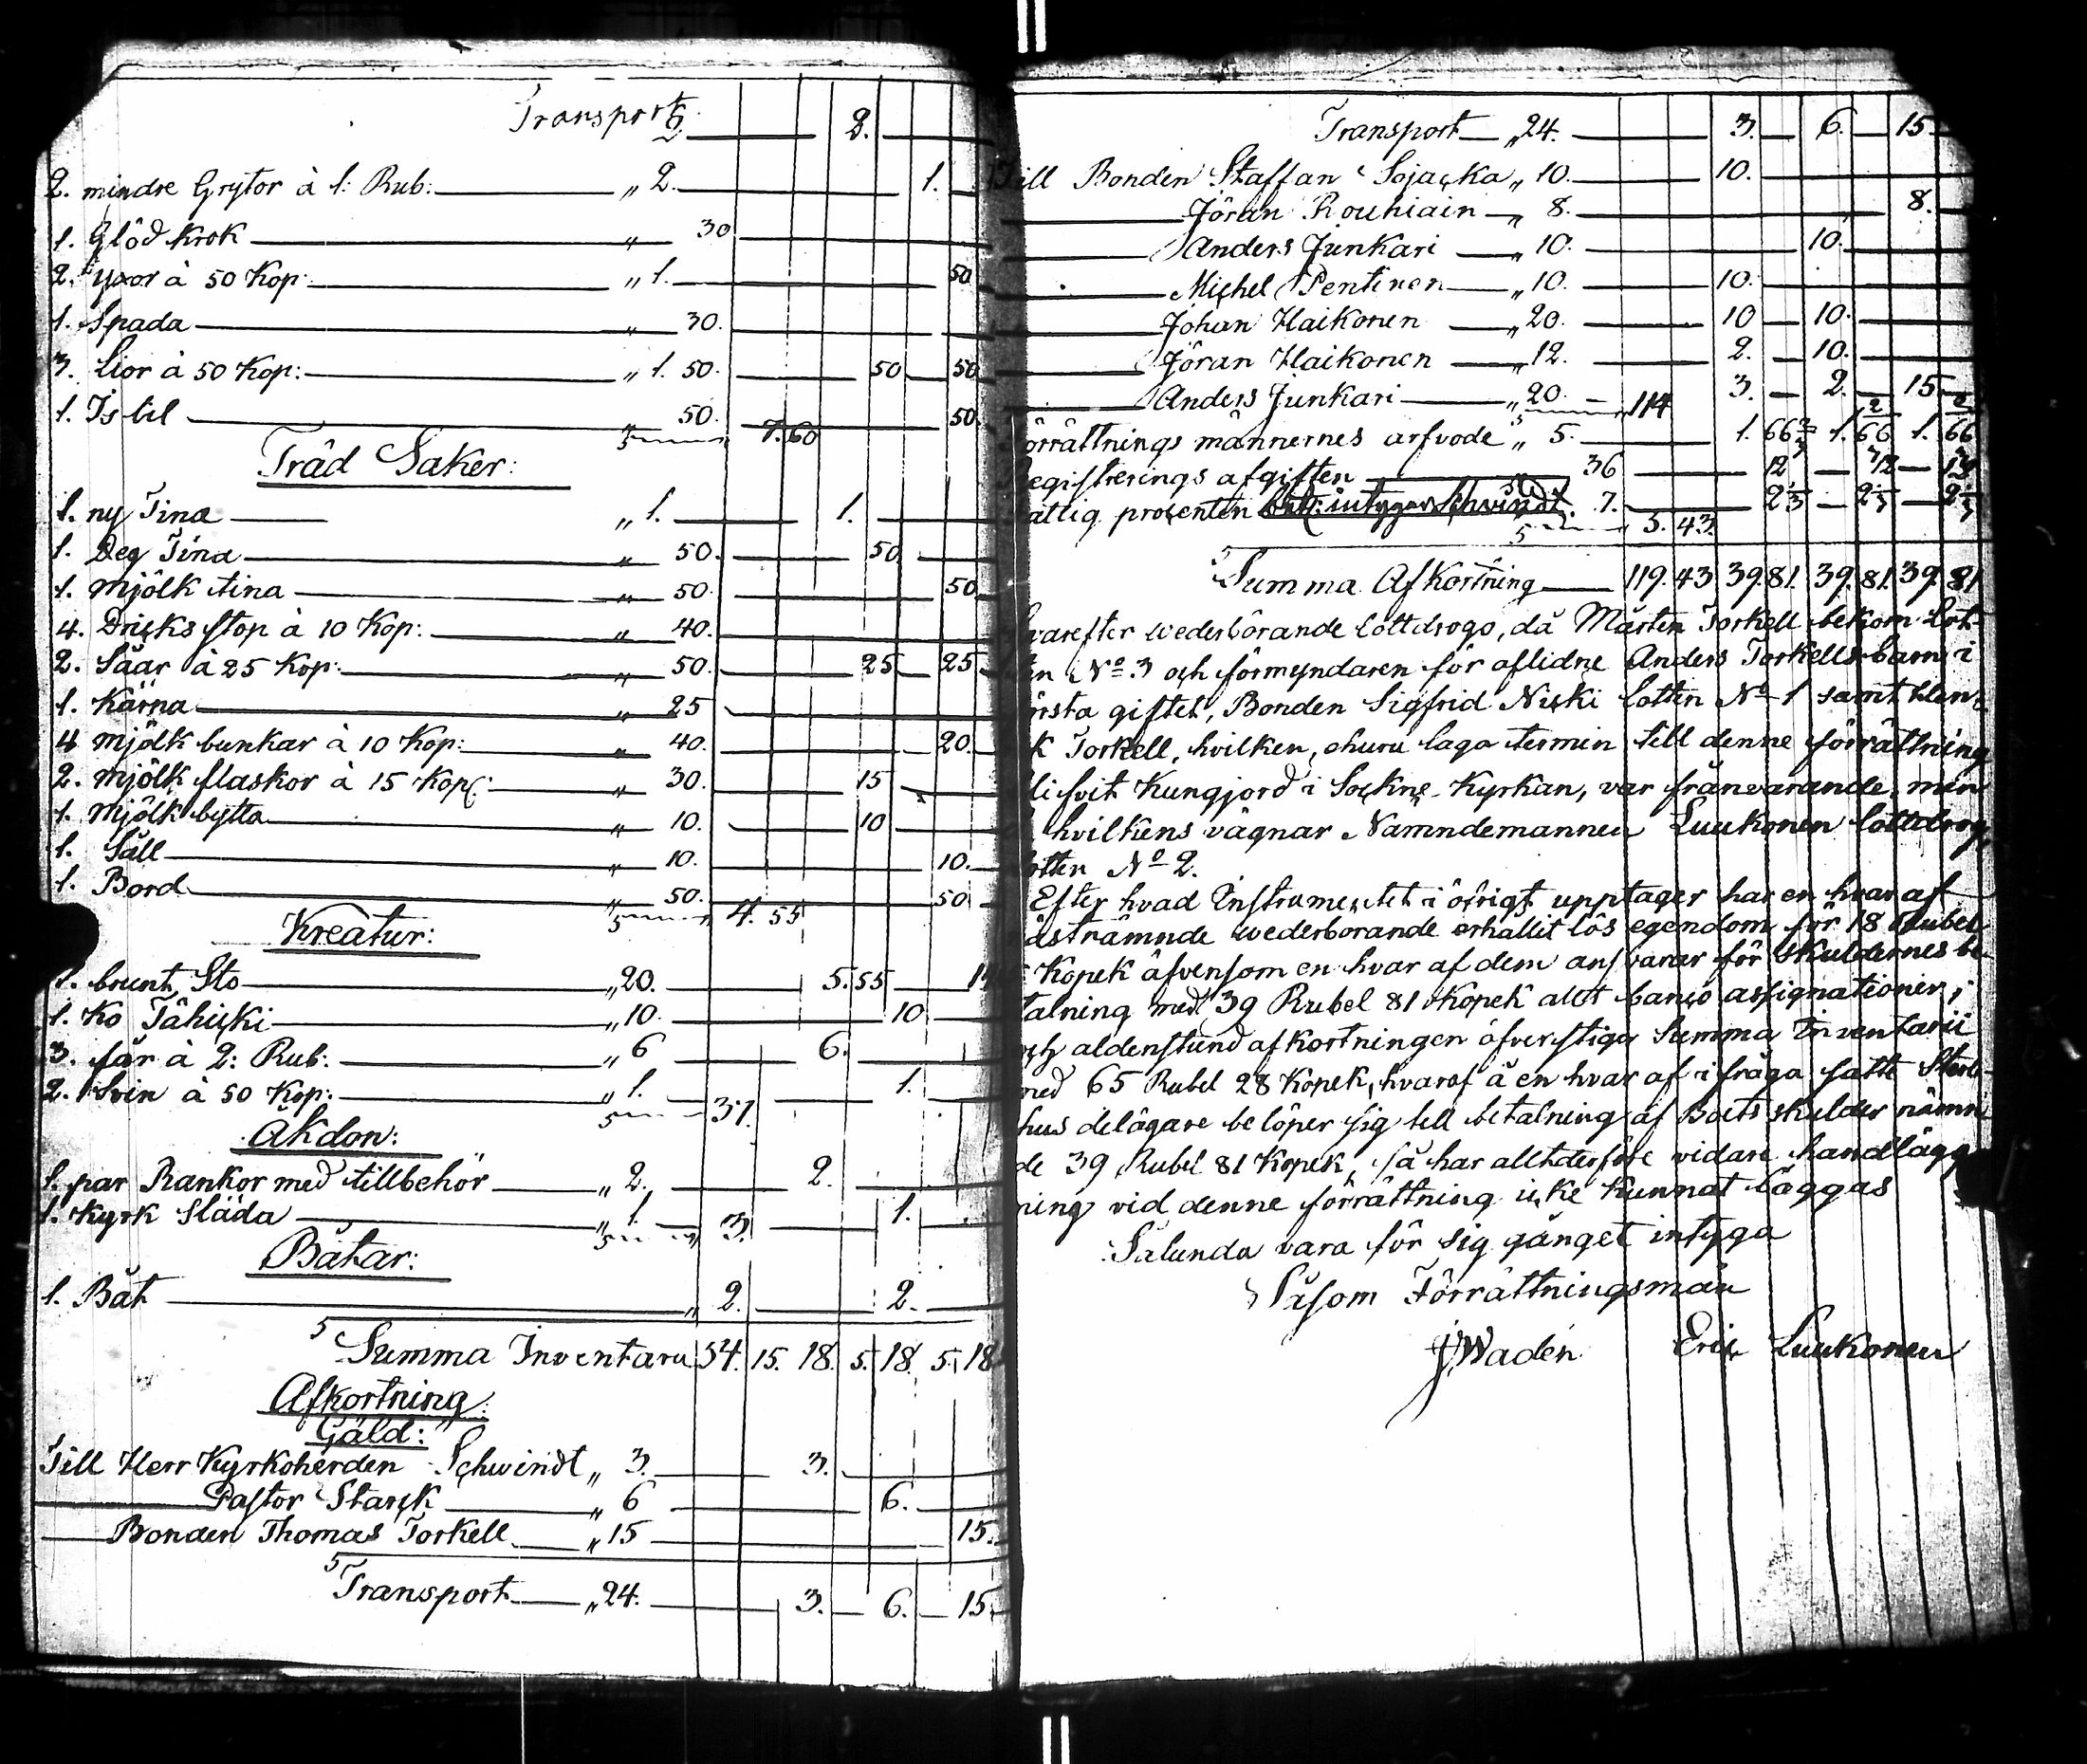 Transport 2. 2.
2. mindre Grytor à 1: Rub: „ 2. 1.
1. Glöd krok „ 30
2. yxor à 50 Kop: „ 1. 50
1. Spada „ 30.
3. Lior à 50 Kop: „ 1. 50. 50 50
1. Is bil „ 50. 50.
7. 60
Träd Saker:
1. ny Tina „ 1. 1.
1. Deg Tina „ 50. 50.
1. Mjölk tina „ 50. 50
4. Dricks stop à 10 Kop: „ 40.
2. Såar à 25 Kop: „ 50. 25 25
1. Kärna „ 25
4 mjölk bunkar à 10 Kop: „ 40. 20.
2. mjölk flaskor à 15 Kop: „ 30. 15
1. Mjölk bytta „ 10. 10
1. Såll „ 10. 10.
1. Bord „ 50. 50
4. 55
Kreatur:
1. brunt Sto „ 20. 5. 55
1. Ko Tähicki „ 10. 10
3. får à 2: Rub: „ 6 6.
2. Svin à 50 Kop: „ 1. 1.
37.
Åkdon:
1. par Rankor med tillbehör „ 2. 2.
1. Kyrk Släda „ 1. 1.
3.
Båtar:
1. Båt „ 2. 2.
Summa Inventarii 54. 15. 18. 5. 18. 5. 18
Afkortning:
Gäld:
Till Herr Kyrkoherden Schwindt „ 3. 3.
Pastor Starck „ 6 6.
Bonden Thomas Torkell „ 15 15.
Transport „ 24. 3. 6. 15.
Transport „ 24. 3. 6. 15
Till Bonden Staffan Sojacka „ 10. 10.
Jöran Rouhiain „ 8. 8.
Anders Junkari „ 10. 10.
Michel Pentinen „ 10. 10.
Johan Haikonen „ 20. 10 10.
Jöran Haikonen „ 12. 2. 10.
Anders Junkari „ 20. 114 3. 2. 15
örrättnings männernes arfvode „ 5. 1. 66 1. 66 1. 66
Registrerings afgiften 36 12 12
attig procenten intygar Schvindt 7. 2⅓ 2⅓ 2⅓
5. 43.
Summa Afkortning 119. 43 39. 81. 39. 81. 39. 81
hvarefter wederbörande lottdrogo, då Mårten Torkell bekom Lot-
ten No 3 och förmyndaren för aflidne Anders Torkells barn i
örsta giftet, Bonden Sigfrid Niski lotten No 1 samt Hen-
k Torkell, hvilken, ehuru laga termin till denne förrättning
lifvit Kungjord i Sockne Kyrkan, var frånvarande, men
hvilkens vägnar Nämndemannen Luukonen lottdrog,
otten No 2.
Efter hvad Instrumentet i öfrigt upptager har en hvar af
ästnämnde wederborande erhållit lös egendom för 18 Rubel
Kopek äfvensom en hvar af dem ansvarar för Skuldernes be-
talning med 39 Rubel 81 Kopek allt banco assignationer,
och aldenstund afkortningen öfverstiga Summa Inventarii
med 65 Rubel 28 Kopek, hvaraf å en hvar af i fråga satte Sterb-
hus delägare belöper sig till betalning af Boets skulder nämn-
de 39 Rubel 81 Kopek, så har allt derföre vidare handlägg-
ning vid denne förrättning icke kunnat läggas
Sålunda vara för sig gånget intyga
Såsom Förrättningsmän
J Wadén Eric Luukonen